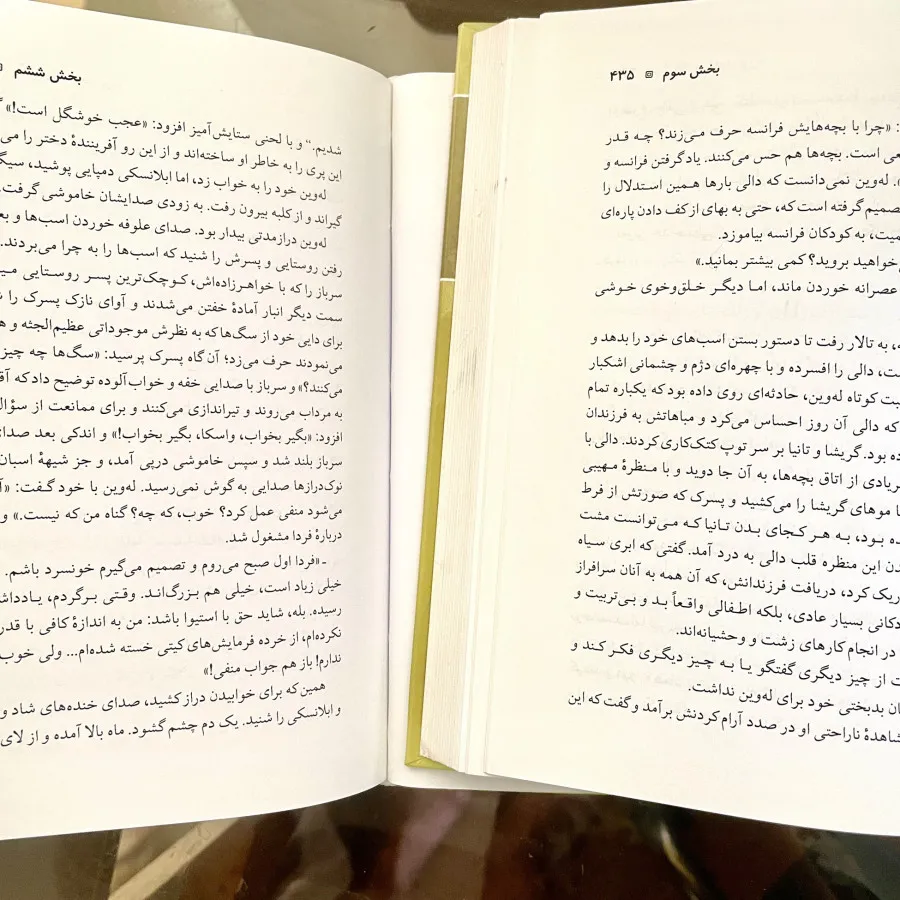 بخش سوم ۴۳۵
: «چرا با بچه‌هایش فرانسه حرف می‌زند؟ چه قدر
است. بچه‌ها هم حس می‌کنند. یادگرفتن فرانسه و
له‌وین نمی‌دانست که دالی بارها همین استدلال را
تصمیم گرفته است که، حتی به بهای از کف دادن پاره‌ای
به کودکان فرانسه بیاموزد.
بروید؟ کمی بیشتر بمانید.»
عصرانه خوردن ماند، اما دیگر خلق‌وخوی خوشی
به تالار رفت تا دستور بستن اسب‌های خود را بدهد و
دالی را افسرده و با چهره‌ای دژم و چشمانی اشکبار
کوتاه له‌وین، حادثه‌ای روی داده بود که یکباره تمام
که دالی آن روز احساس می‌کرد و مباهاتش به فرزندان
بود. گریشا و تانیا بر سر توپ کتک‌کاری کردند. دالی با
از اتاق بچه‌ها، به آن جا دوید و با منظرهٔ مهیبی
موهای گریشا را می‌کشید و پسرک که صورتش از فرط
بود، به هر کجای بدن تانیا که می‌توانست مشت
این منظره قلب دالی به درد آمد. گفتی که ابری سیاه
کرد، دریافت فرزندانش، که آن همه به آنان سرافراز
بسیار عادی، بلکه اطفالی واقعاً بد و بی‌تربیت و
در انجام کارهای زشت و وحشیانه‌اند.
از چیز دیگری گفتگو یا به چیز دیگری فکر کند و
بدبختی خود برای له‌وین نداشت.
ناراحتی او در صدد آرام کردنش برآمد و گفت که این
بخش ششم
شدیم.“ و با لحنی ستایش‌آمیز افزود: «عجب خوشگل است!»
این پری را به خاطر او ساخته‌اند و از این رو آفرینندهٔ دختر را
له‌وین خود را به خواب زد، اما ابلانسکی دمپایی پوشید،
گیراند و از کلبه بیرون رفت. به زودی صدایشان خاموشی گرفت.
له‌وین درازمدتی بیدار بود. صدای علوفه خوردن اسب‌ها و
رفتن روستایی و پسرش را شنید که اسب‌ها را به چرا می‌بردند.
سرباز را که با خواهرزاده‌اش، کوچک‌ترین پسر روستایی
سمت دیگر انبار آمادهٔ خفتن می‌شدند و آوای نازک پسرک را
برای دایی خود از سگ‌ها که به نظرش موجوداتی عظیم‌الجثه و
می‌نمودند حرف می‌زد؛ آن گاه پسرک پرسید: «سگ‌ها چه چیز
می‌کنند؟» و سرباز با صدایی خفه و خواب‌آلوده توضیح داد که
به مرداب می‌روند و تیراندازی می‌کنند و برای ممانعت از سؤال
افزود: «بگیر بخواب، واسکا، بگیر بخواب!» و اندکی بعد صدای
سرباز بلند شد و سپس خاموشی درپی آمد، و جز شیههٔ اسبان
نوک‌درازها صدایی به گوش نمی‌رسید. له‌وین با خود گفت:
می‌شود منفی عمل کرد؟ خوب، که چه؟ گناه من که نیست.» و
دربارهٔ فردا مشغول شد.
ـ «فردا اول صبح می‌روم و تصمیم می‌گیرم خونسرد باشم.
خیلی زیاد است، خیلی هم بزرگ‌اند. وقتی برگردم،
رسیده. بله، شاید حق با استیوا باشد: من به اندازهٔ کافی با
نکرده‌ام، از خرده فرمایش‌های کیتی خسته شده‌ام... ولی خوب
ندارم! باز هم جواب منفی!»
همین که برای خوابیدن دراز کشید، صدای خنده‌های شاد و
و ابلانسکی را شنید. یک دم چشم گشود. ماه بالا آمده و از لای